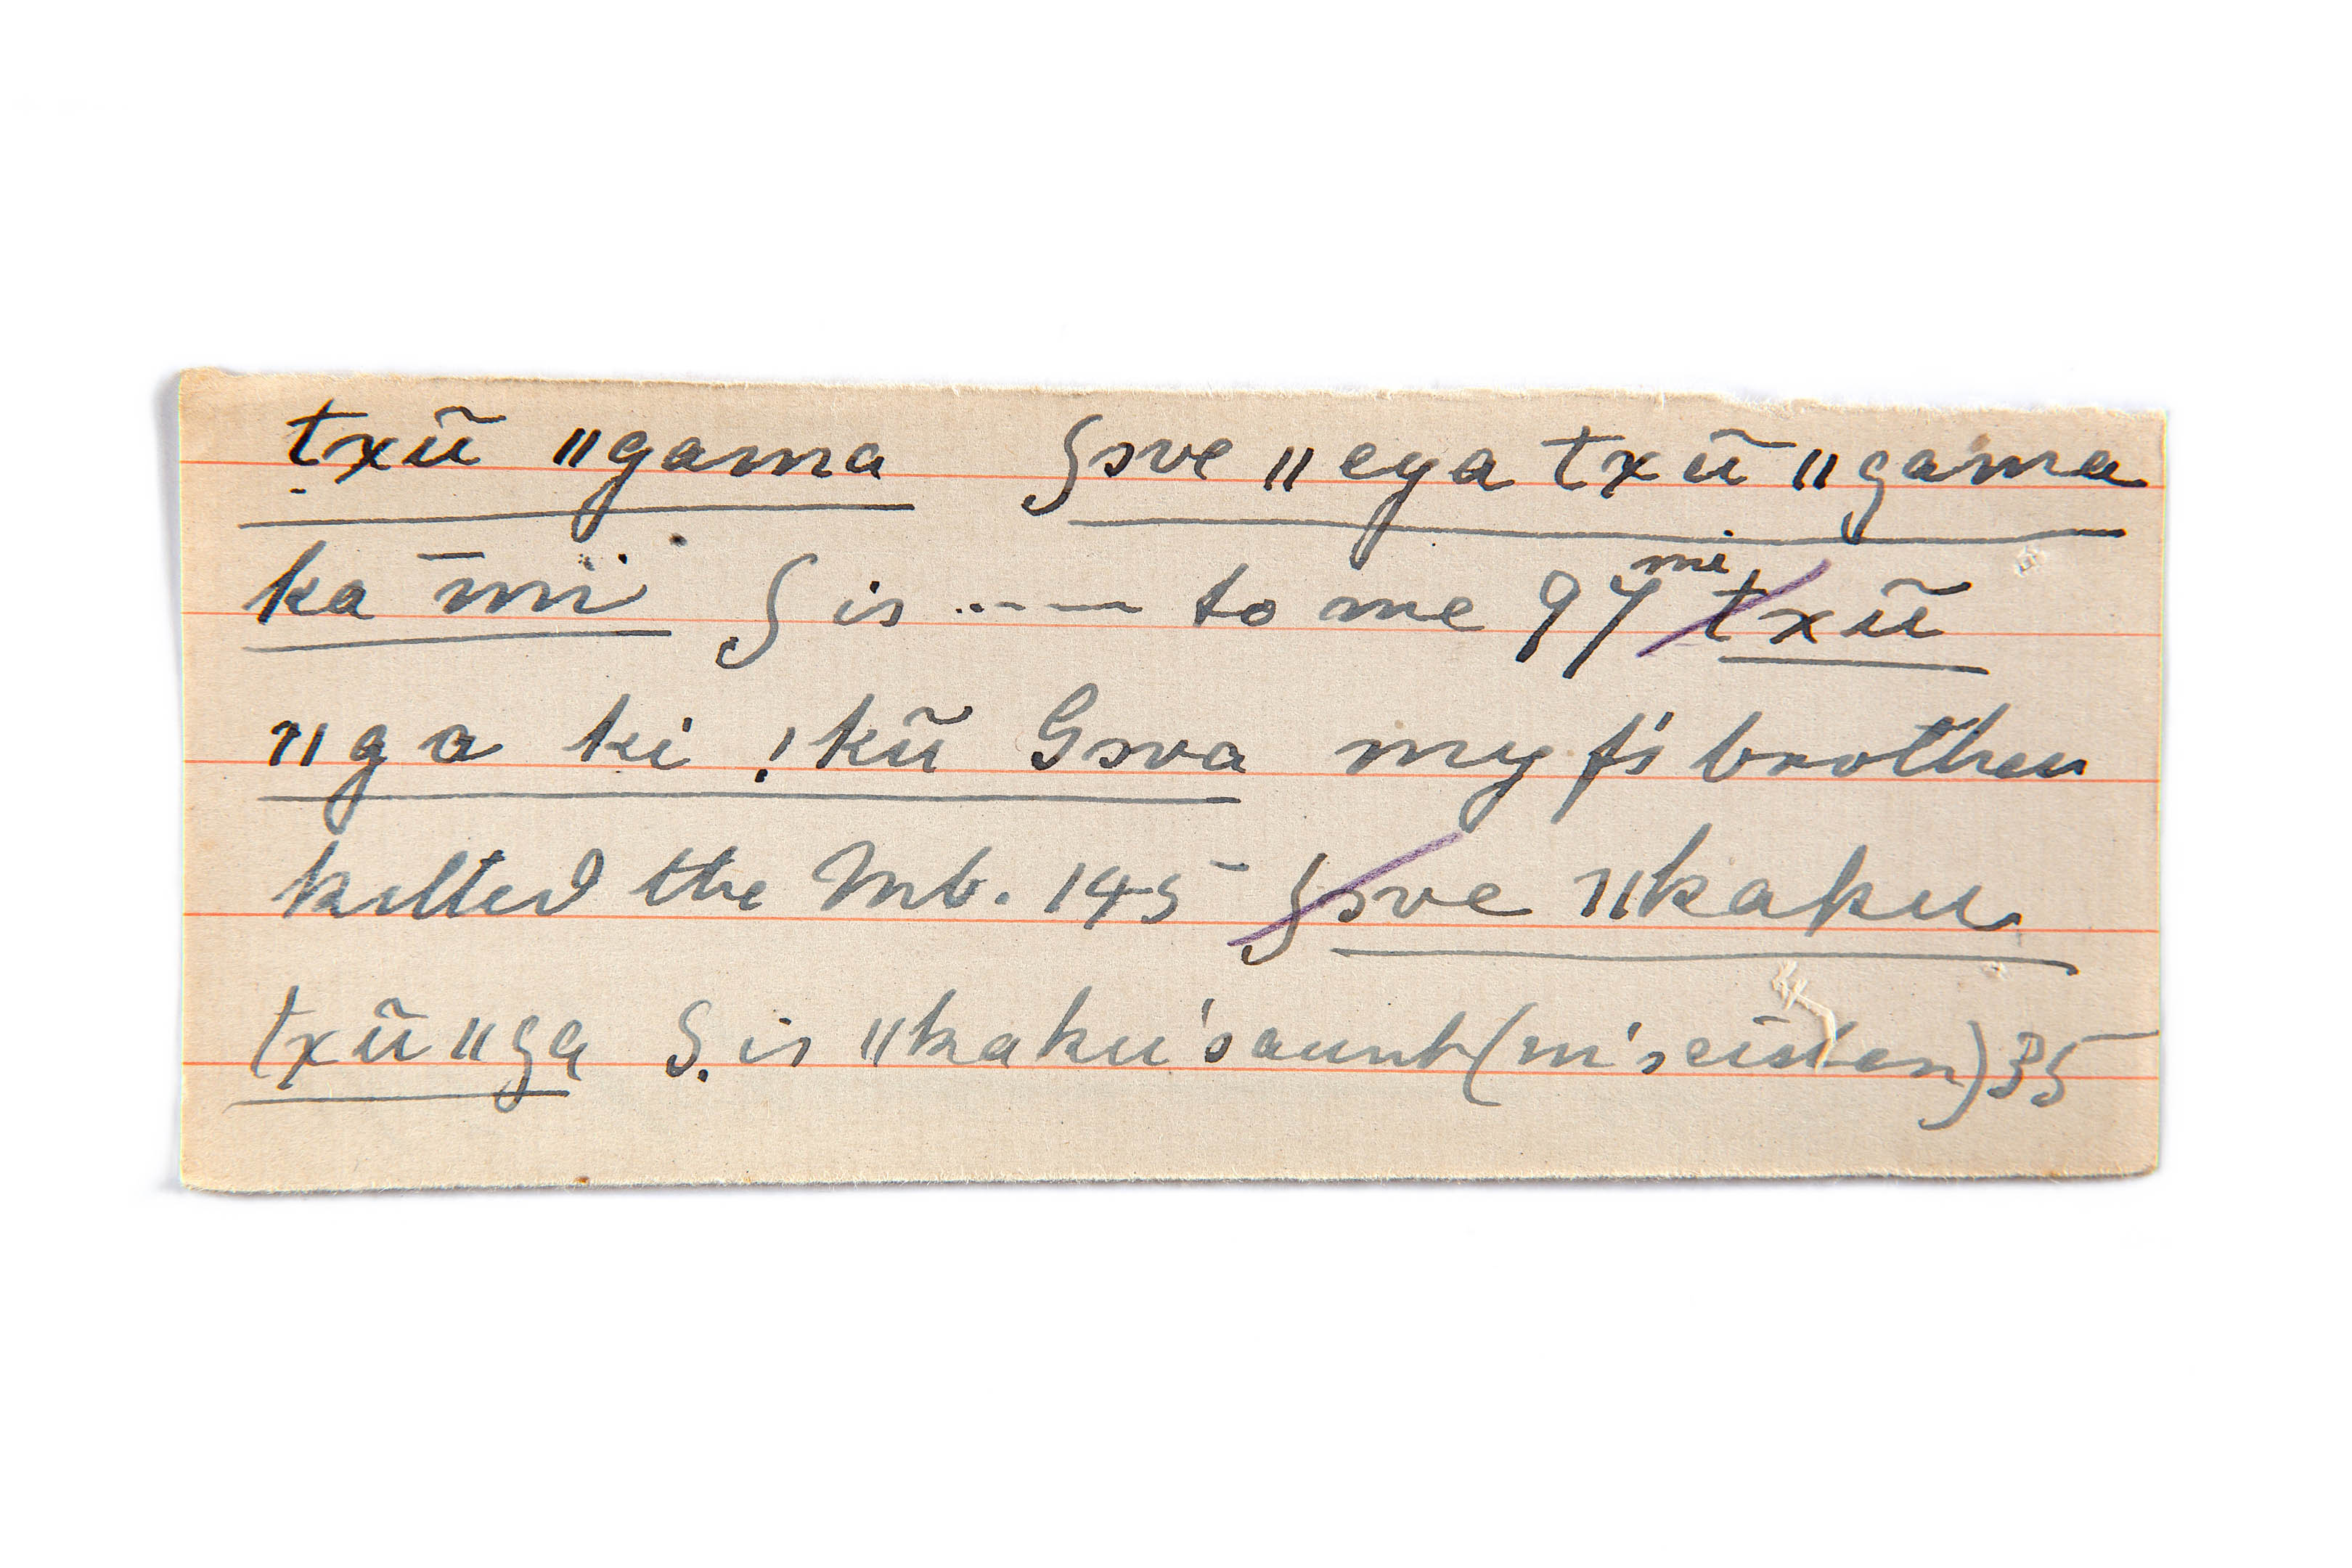 txũ ǁgama Gɔve ǁeya txũ ǁgama
ka m̄i G is ---- to me 97 mi txũ
ǁga ki !kũ Gɔva my f's brother
killed the Mb. 145 Gɔve ǁkaku
txũ ǁga G. is ǁkaku's aunt (m's sister) 35